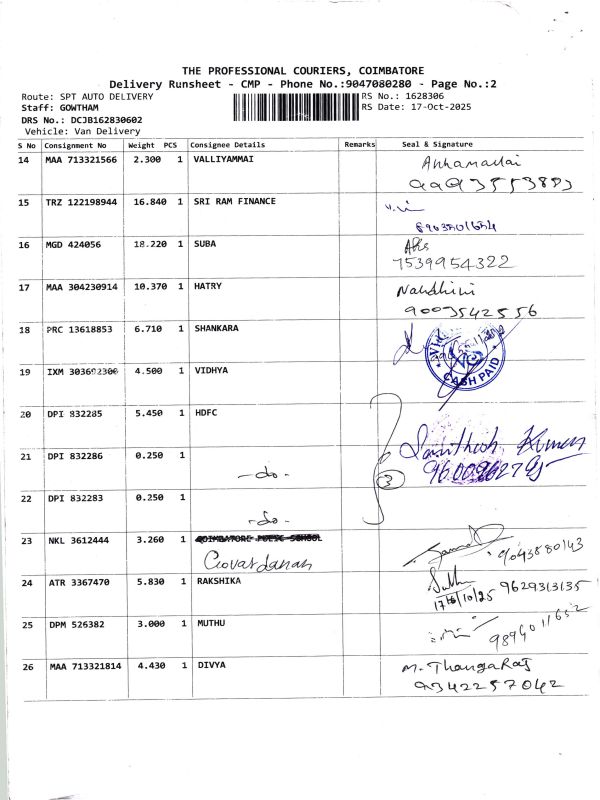 THE PROFESSIONAL COURIERS, COIMBATORE
Delivery Runsheet - CMP - Phone No.:9047080280 - Page No.:2
Route: SPT AUTO DELIVERY RS No.: 1628306
Staff: GOWTHAM RS Date: 17-Oct-2025
DRS No.: DCJB162830602
Vehicle: Van Delivery
S No Consignment No Weight PCS Consignee Details Remarks Seal & Signature
14 MAA 713321566 2.300 1 VALLIYAMMAI
15 TRZ 122198944 16.840 1 SRI RAM FINANCE
16 MGD 424056 18.220 1 SUBA
7539954322
17 MAA 304230914 10.370 1 HATRY Nandhini
9003542556
18 PRC 13618853 6.710 1 SHANKARA
19 IXM 303602300 4.500 1 VIDHYA CASH PAID
20 DPI 832285 5.450 1 HDFC
21 DPI 832286 0.250 1
-do- 3
22 DPI 832283 0.250 1
-do-
23 NKL 3612444 3.260 1
Govardanan 9043880143
24 ATR 3367470 5.830 1 RAKSHIKA 9629313135
17/10/25
25 DPM 526382 3.000 1 MUTHU 9894011652
26 MAA 713321814 4.430 1 DIVYA M. ThangaRaj
9342257042